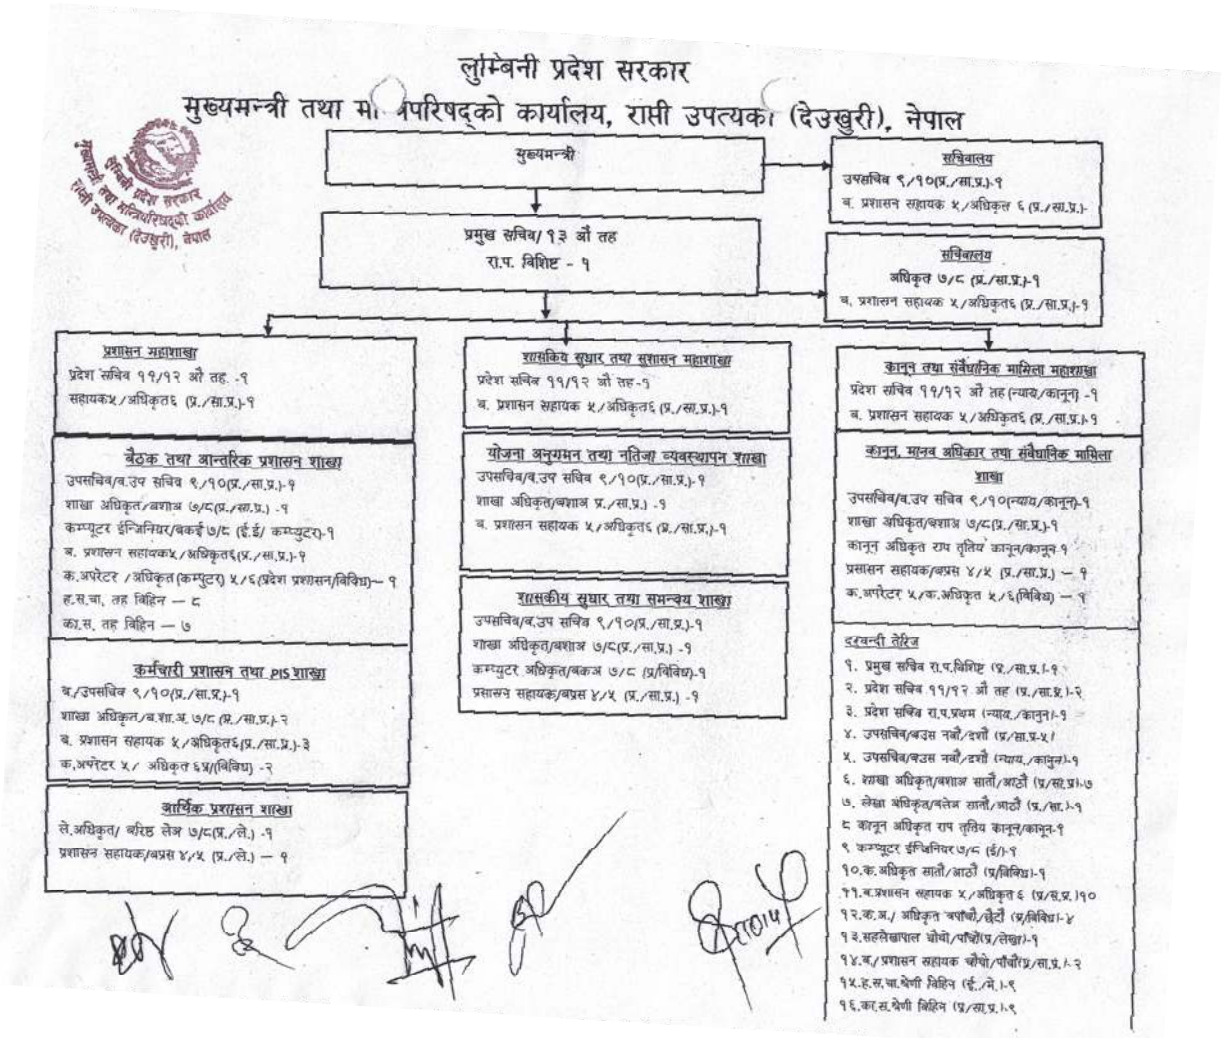 लुम्बिनी प्रदेश सरकार
मुख्यमन्त्री तथा म परिषद्को कार्यालय, राप्ती उपत्यका (देउखुरी), नेपाल
लुम्बिनी प्रदेश सरकार
मुख्यमन्त्री तथा मन्त्रिपरिषद्को कार्यालय
राप्ती उपत्यका (देउखुरी), नेपाल
मुख्यमन्त्री
सचिवालय
उपसचिव ९/१०(प्र./सा.प्र.)-१
ब. प्रशासन सहायक ५/अधिकृत ६ (प्र./सा.प्र.)-
प्रमुख सचिव/१३ औ तह
रा.प. विशिष्ट - १
सचिवालय
अधिकृत ७/८ (प्र./सा.प्र.)-१
ब. प्रशासन सहायक ५/अधिकृत६ (प्र./सा.प्र.)-१
प्रशासन महाशाखा
प्रदेश सचिव ११/१२ औ तह -१
सहायक५/अधिकृत६ (प्र./सा.प्र.)-१
बैठक तथा आन्तरिक प्रशासन शाखा
उपसचिव/ब.उप सचिव ९/१०(प्र./सा.प्र.)-१
शाखा अधिकृत/बशाअ ७/८(प्र./सा.प्र.) -१
कम्प्युटर ईन्जिनियर/बकई ७/८ (ई.ई/ कम्प्युटर)-१
ब. प्रशासन सहायक५/अधिकृत६(प्र./सा.प्र.)-१
क.अपरेटर /अधिकृत(कम्पुटर) ५/६(प्रदेश प्रशासन/विविध)— १
ह.स.चा. तह विहिन — ८
का.स. तह विहिन — ७
कर्मचारी प्रशासन तथा PIS शाखा
ब./उपसचिव ९/१०(प्र./सा.प्र.)-१
शाखा अधिकृत/ब.शा.अ. ७/८ (प्र./सा.प्र.)-२
ब. प्रशासन सहायक ५/अधिकृत६(प्र./सा.प्र.)-३
क.अपरेटर ५/ अधिकृत ६प्र/(विविध) -२
आर्थिक प्रशासन शाखा
ले.अधिकृत/ बरिष्ठ लेअ ७/८(प्र./ले.) -१
प्रशासन सहायक/बप्रस ४/५ (प्र./ले.) — १
शासकिय सुधार तथा सुशासन महाशाखा
प्रदेश सचिव ११/१२ औ तह-१
ब. प्रशासन सहायक ५/अधिकृत६ (प्र./सा.प्र.)-१
योजना अनुगमन तथा नतिजा व्यवस्थापन शाखा
उपसचिव/ब.उप सचिव ९/१०(प्र./सा.प्र.)-१
शाखा अधिकृत/बशाअ प्र./सा.प्र.) -१
ब. प्रशासन सहायक ५/अधिकृत६ (प्र./सा.प्र.)-१
शासकीय सुधार तथा समन्वय शाखा
उपसचिव/ब.उप सचिव ९/१०(प्र./सा.प्र.)-१
शाखा अधिकृत/बशाअ ७/८(प्र./सा.प्र.) -१
कम्प्युटर अधिकृत/बकअ ७/८ (प्र/विविध)-१
प्रसासन सहायक/बप्रस ४/५ (प्र./सा.प्र.) -१
कानुन तथा संवैधानिक मामिला महाशाखा
प्रदेश सचिव ११/१२ औ तह(न्याय/कानून) -१
ब. प्रशासन सहायक ५/अधिकृत६ (प्र./सा.प्र.)-१
कानून, मानव अधिकार तथा संवैधानिक मामिला
शाखा
उपसचिव/ब.उप सचिव ९/१०(न्याय/कानून)-१
शाखा अधिकृत/बशाअ ७/८(प्र./सा.प्र.)-१
कानून अधिकृत राप तृतिय कानून/कानून-१
प्रसासन सहायक/बप्रस ४/५ (प्र./सा.प्र.) — १
क.अपरेटर ५/क.अधिकृत ५/६(विविध) — १
दरबन्दी तेरिज
१. प्रमुख सचिव रा.प.विशिष्ट (प्र./सा.प्र.)-१
२. प्रदेश सचिव ११/१२ औ तह (प्र./सा.प्र.)-२
३. प्रदेश सचिव रा.प.प्रथम (न्याय./कानुन)-१
४. उपसचिव/बउस नवौ/दशौ (प्र/सा.प्र-५)
५. उपसचिव/बउस नवौ/दशौ (न्याय./कानुन)-१
६. शाखा अधिकृत/बशाअ सातौ/आठौ (प्र/सा.प्र)-७
७. लेखा अधिकृत/बलेअ सातौ/आठौ (प्र./सा.)-१
८ कानून अधिकृत राप तृतिय कानून/कानून-१
९ कम्प्युटर ईन्जिनियर७/८ (ई/)-१
१०.क.अधिकृत सातौ/आठौ (प्र/विविध)-१
११.ब.प्रशासन सहायक ५/अधिकृत ६ (प्र/स.प्र.)१०
१२.क.अ./ अधिकृत बपाँचौ/छैटौ (प्र/विविध)-४
१३.सहलेखापाल चौथो/पाँचौ(प्र/लेखा)-१
१४.ब./प्रशासन सहायक चौथो/पाँचौ(प्र/सा.प्र.)-२
१५.ह.स.चा.श्रेणी विहिन (ई./मे.)-९
१६.का.स.श्रेणी विहिन (प्र/सा.प्र.)-९